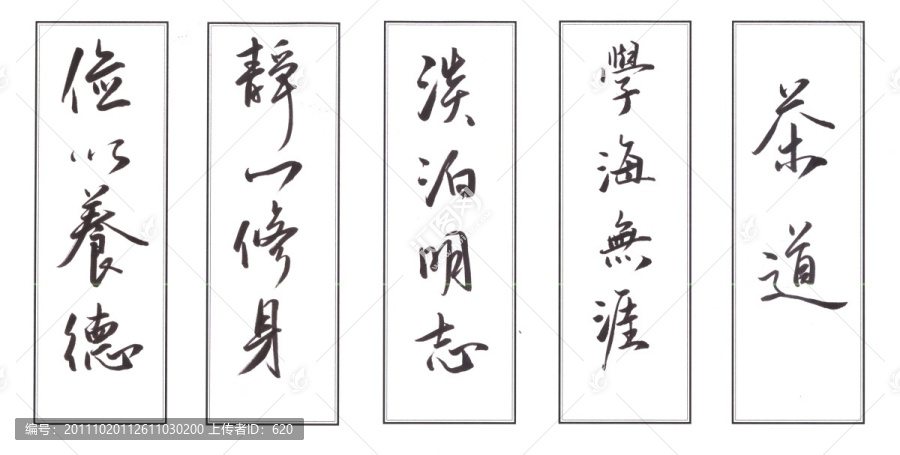 儉以養德
靜以修身
淡泊明志
學海無涯
茶道
编号：20111020112611030200 上传者ID：620